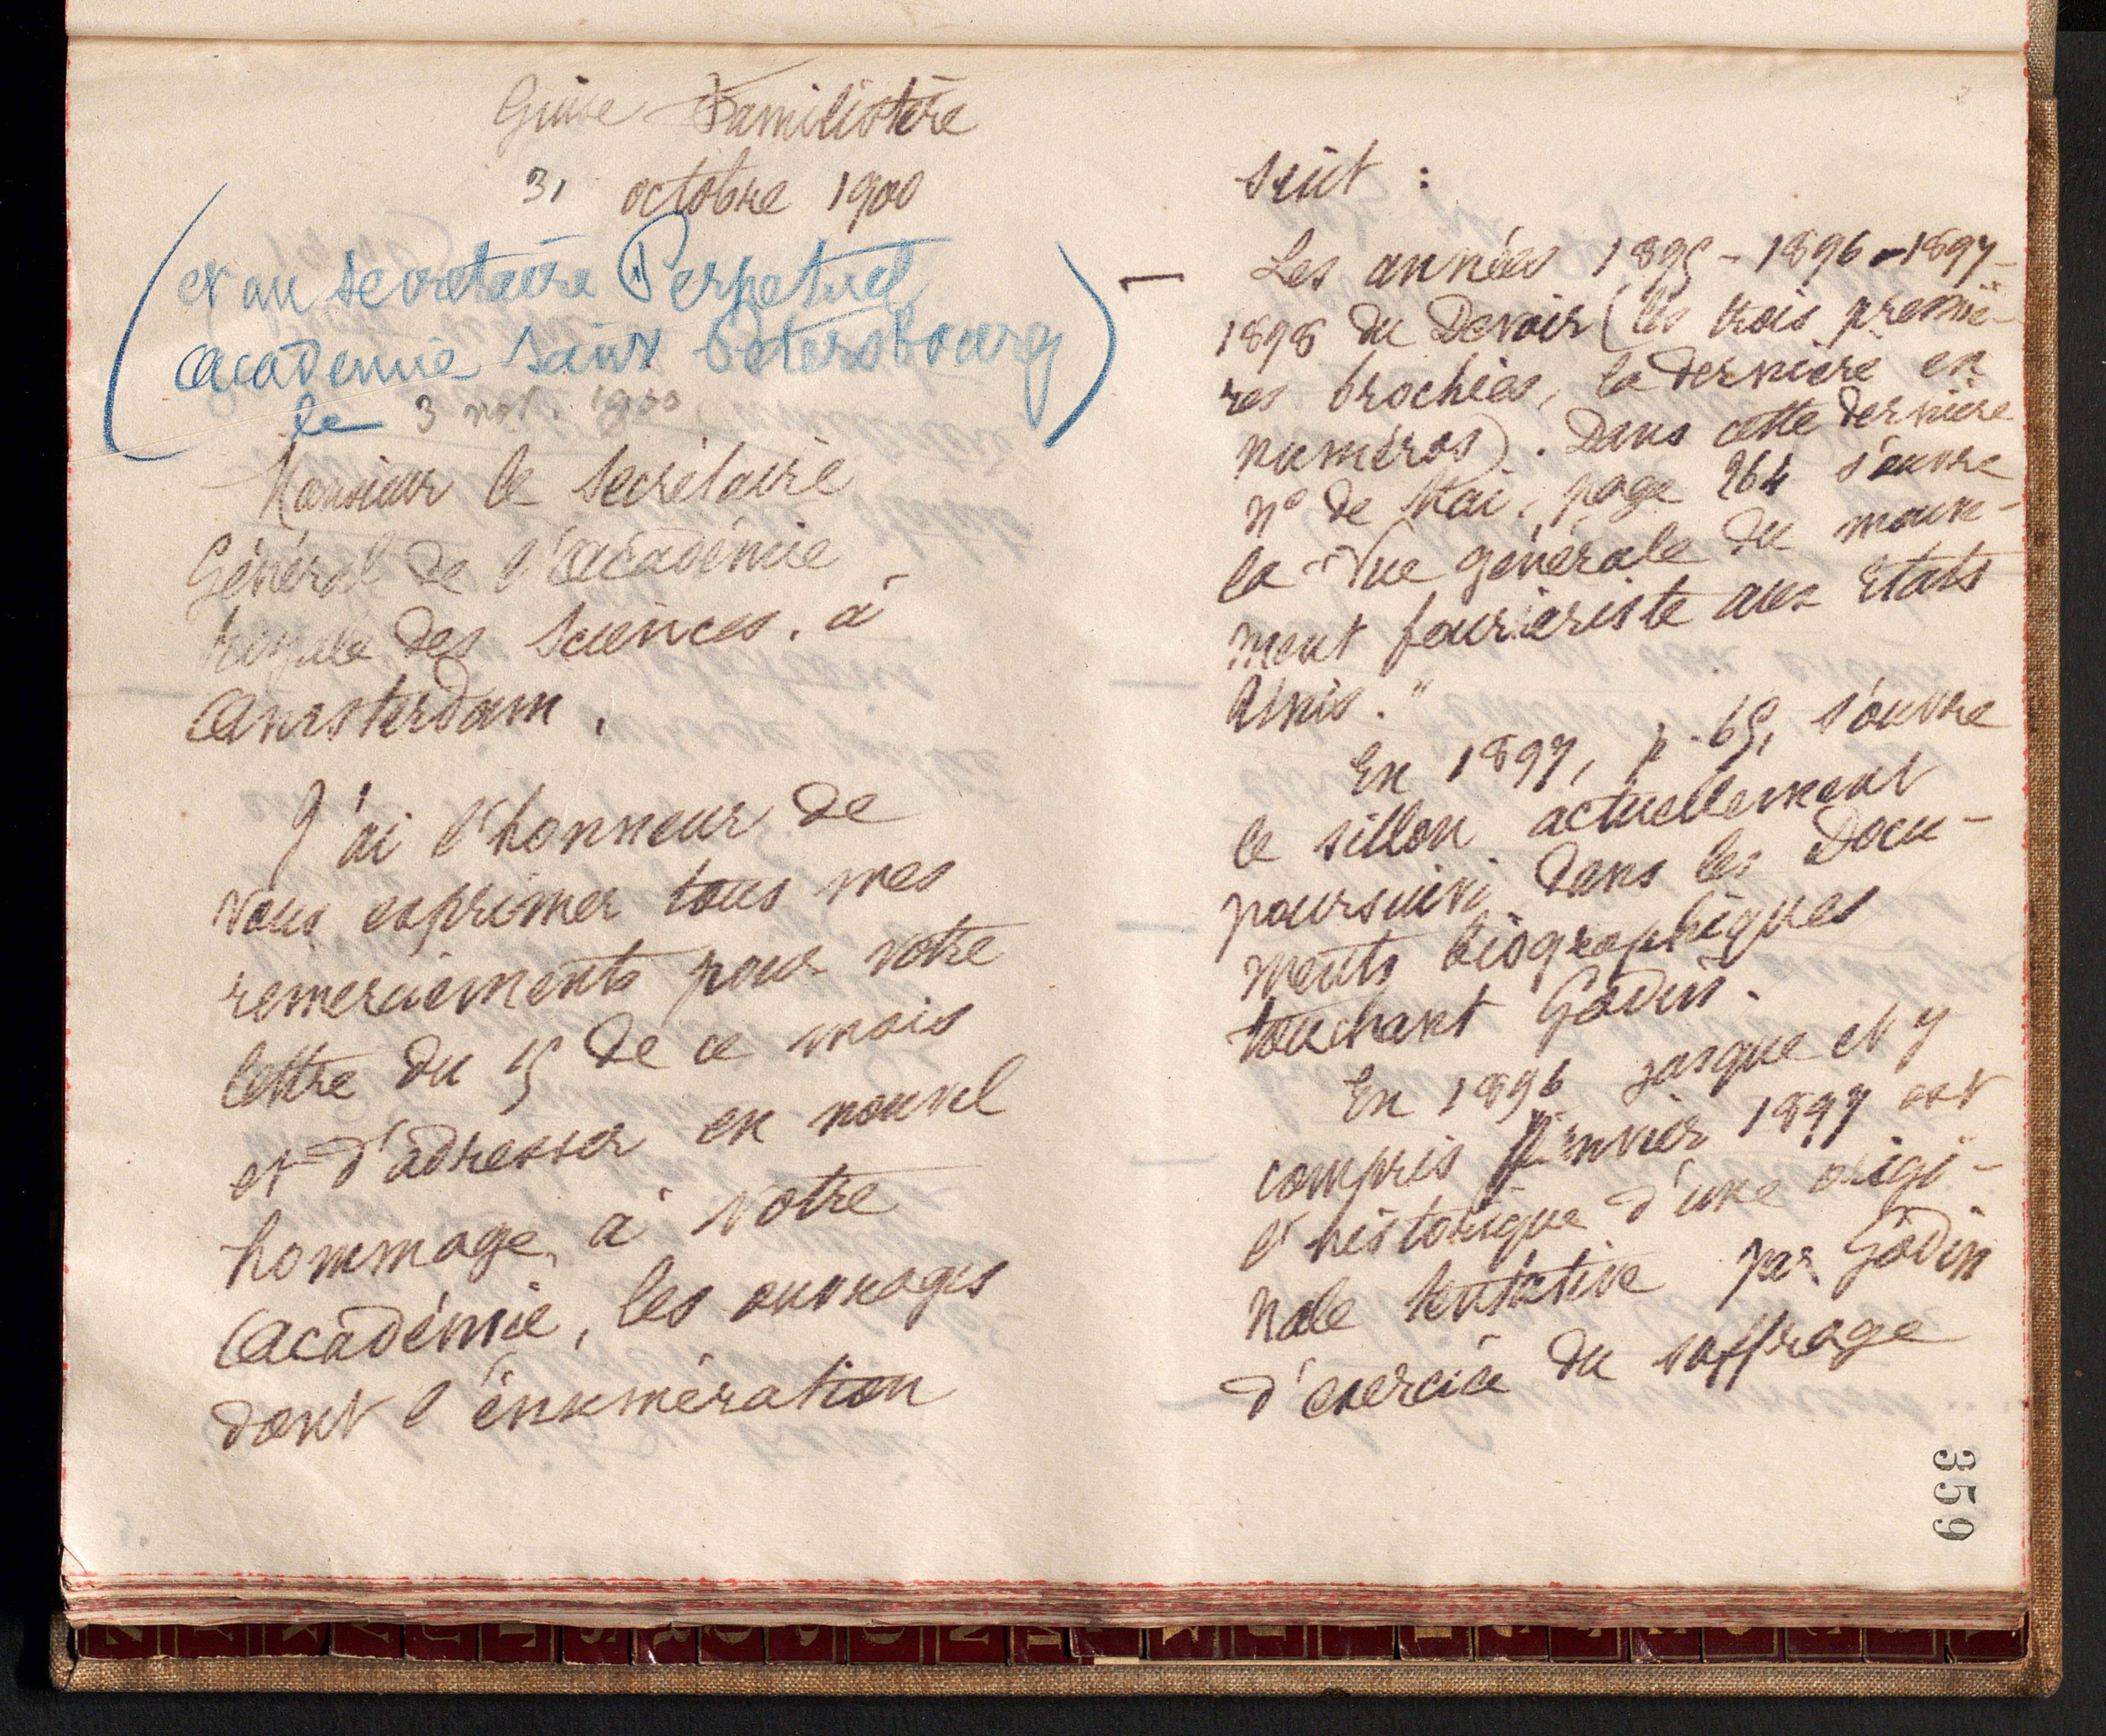 Guise Familistère
31 octobre 1900
(et au secretaire Perpetuel
Academie Saint Petersbourg
le 3 nov. 1900)
Monsieur le Secrétaire
Général de l'Académie
Royale des Sciences. à
Amsterdam.
J'ai l'honneur de
vous exprimer tous mes
remerciements pour votre
lettre du 15 de ce mois
et d'adresser en nouvel
hommage, à votre
Académie, les ouvrages
dont l'énumération
suit :
Les années 1895 - 1896 - 1897 -
1898 du Devoir (les trois premiè-
res brochées, la dernière en
numéros). Dans cette dernière
n° de Mai, page 264 s'ouvre
la "Vue générale du mouve-
ment fouriériste aux Etats
Unis."
En 1897, p. 65, s'ouvre
le sillon actuellement
poursuivi dans les Docu-
ments biographiques
touchant Godin.
En 1896 jusque et y
compris Janvier 1897 est
l'historique d'une origi-
nale tentative par Godin
d'exercice du suffrage
359